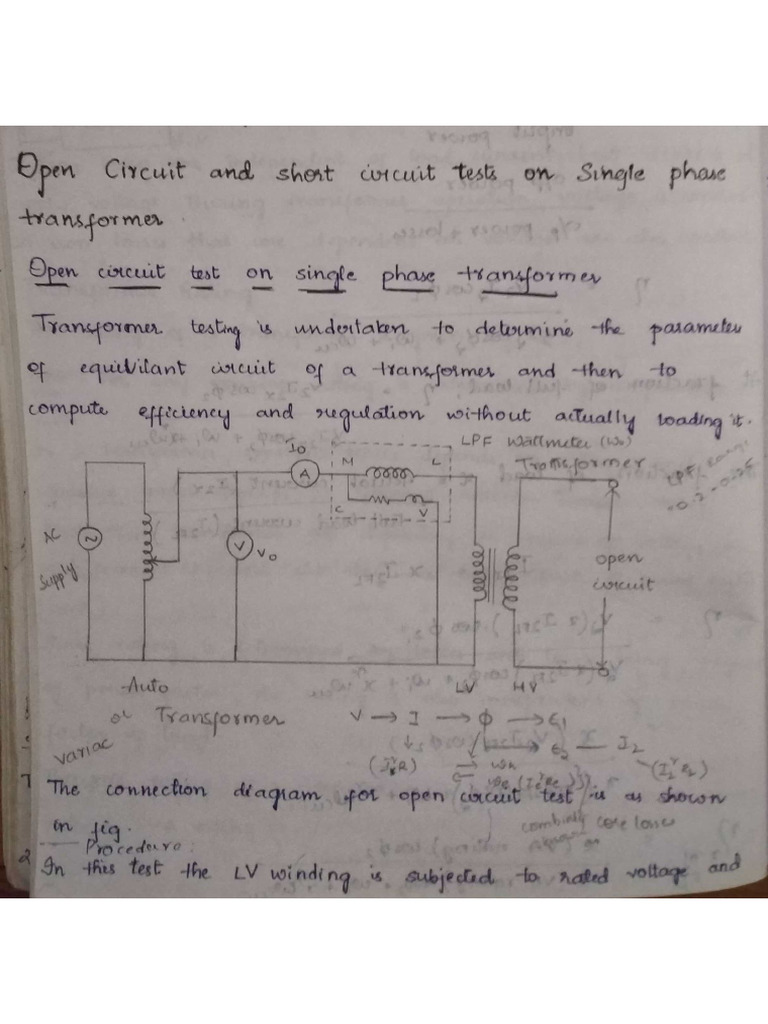 Open Circuit and short circuit tests on Single phase
transformer.
Open circuit test on single phase transformer
Transformer testing is undertaken to determine the parameter
of equivilant circuit of a transformer and then to
compute efficiency and regulation without actually loading it.
LPF Wattmeter (W₀)
I₀
M L
Transformer
LPF range
= 0.2 - 0.25
A
C V
AC
supply
V V₀
open
circuit
Auto
LV HV
or Transformer
variac
V → I → Φ → E₁
E₂ — I₂
The connection diagram for open circuit test is as shown
in fig.
combinely core losses
Procedure:
In this test the LV winding is subjected to rated voltage and